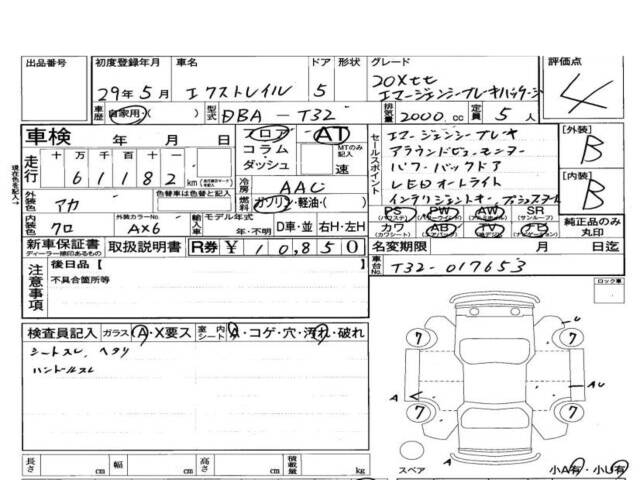 出品番号 初度登録年月 車名 ドア 形状 グレード 評価点
29年5月 エクストレイル 5 20Xtt 4
エマージェンシーブレーキパッケージ
車歴 自家用・( ) 型式 DBA-T32 排気量 2000cc 定員 5人
車検 年 月 日 フロア AT セールスポイント エマージェンシーブレーキ [外装] B
走行 十 万 千 百 十 一 コラム MTのみ記入 アラウンドビューモニター
61182 km ダッシュ 速 パワーバックドア
現在色を記入→ 冷房 AAC LEDオートライト [内装] B
外装色 アカ 色替車は色替前の色 燃料 ガソリン・軽油・( ) インテリジェントオープニング
内装色 クロ 外装カラーNo. AX6 輸入車 モデル年式 年・不明 D車・並 右H・左H
PS (パワステ) PW (パワーウインドウ) AW SR (サンルーフ) 純正品のみ丸印
カワ (カワシート) AB (エアバッグ) TV ナビ (ナビゲーション)
新車保証書 ディーラー捺印あるもの 取扱説明書 R券 ¥ 10,850 名変期限 月 日迄
注意事項 後日品 [ ] 車台No. T32-017653
不具合箇所等 ロック車
検査員記入 ガラス A・X要ス 室内シート A・コゲ・穴・汚れ・破れ
シートスレ、ヘタリ
ハンドルスレ
U
7 7
A AU
7 7
A
スペア
長さ cm 幅 cm 高さ cm 積載量 kg 小A有・小U有